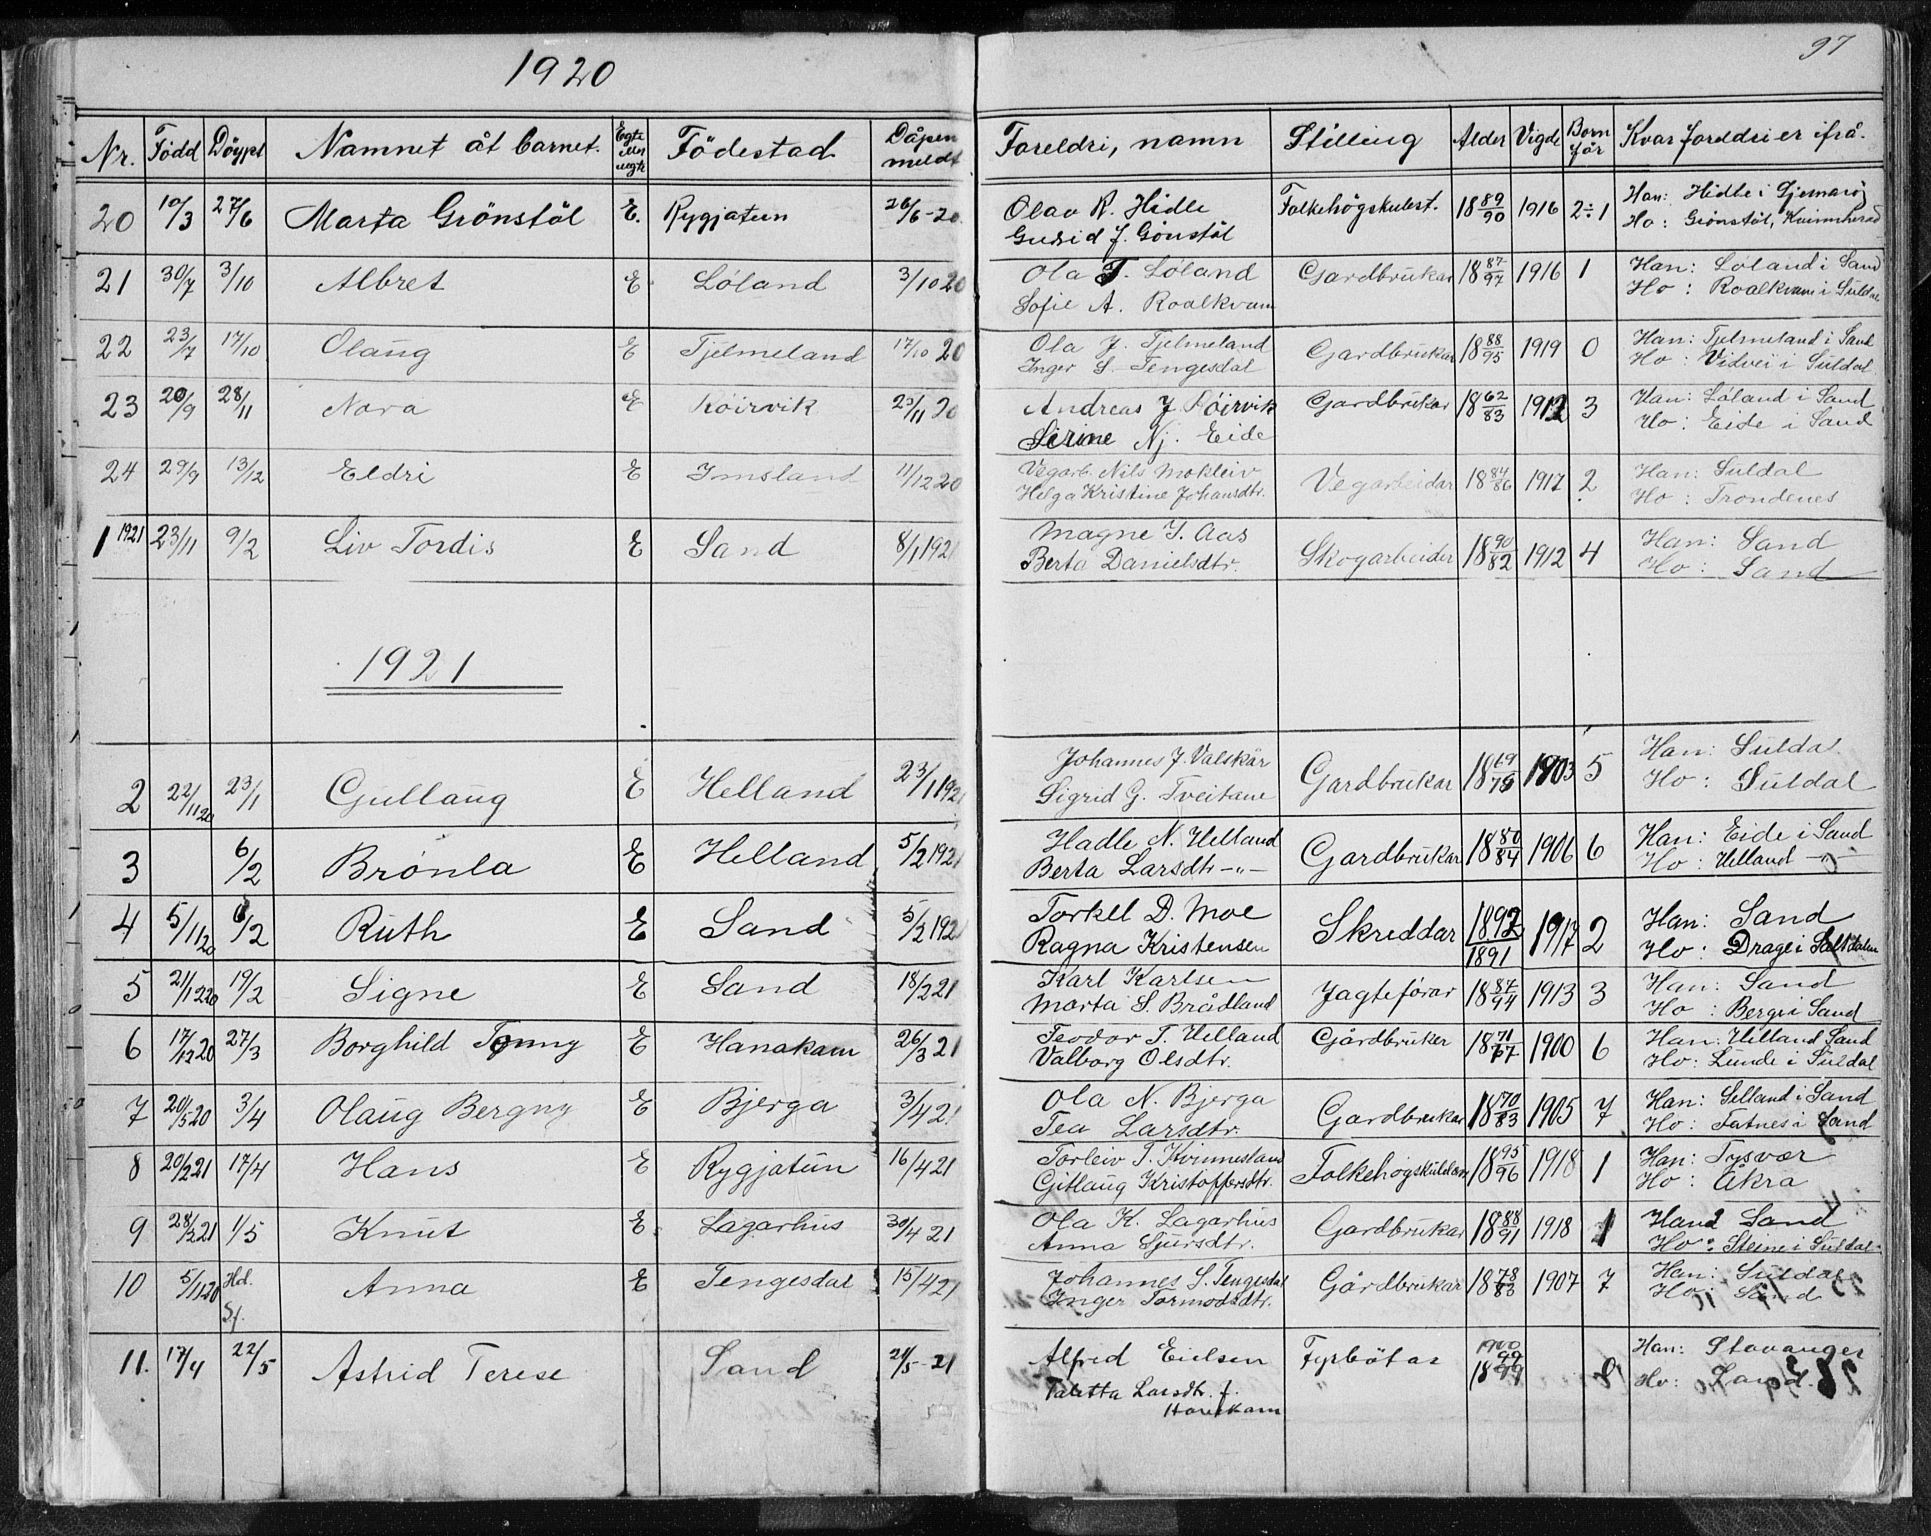 1920
97
Nr. Född Döypt Namnet åt barnet. Egte elln uegte Födestad Dåpen meldt Foreldri, namn Stilling Alder Vigde Born för Kvar foreldri er ifrå.
20 10/3 27/6 Marta Grönstöl E. Rygjatun 26/6-20. Olav R. Hidle Folkehögskulest. 18 89/90 1916 2÷1 Han: Hidle i
Gudrid J. Gönstöl Ho: Grönstöl, Kvinnherad
21 30/7 3/10 Albret E Löland 3/10 20 Ola T. Löland Gardbrukar 18 87/97 1916 1 Han: Löland i Sand
Sofie A. Roalkvam Ho: Roalkvam i Suldal
22 23/7 17/10 Olaug E Tjelmeland 17/10 20 Ola J. Tjelmeland Gardbrukar 18 88/95 1919 0 Han: Tjelmeland i Sand
Inger S. Tengesdal Ho: i Suldal
23 20/9 28/11 Nora E Röirvik 11 20 Andreas J Röirvik Gardbrukar 18 62/83 1912 3 Han: Löland i Sand
Serine Nj. Eide Ho: Eide i Sand
24 29/9 13/12 Eldri E Imsland 11/12 20 Vegarb. Nils Mokleiv Vegarbeidar 18 84/86 1917 2 Han: Suldal
Helga Kristine Johansdtr. Ho: Trondenes
1 1921 23/11 9/2 Liv Tordis E Sand 8/1 1921 Magne I. Aas Skogarbeider 18 90/82 1912 4 Han: Sand
Berta Danielsdtr. Ho: Sand
1921
2 22/11 20 23/1 Gullaug E Helland 23/1 1921 Johannes J. Valskår Gardbrukar 18 69/79 1903 5 Han: Suldal
Sigrid G. Tveitane Ho: Suldal
3 6/2 Brönla E Helland 5/2 1921 Hadle N. Helland Gardbrukar 18 80/84 1906 6 Han: Eide i Sand
Berta Larsdtr -"- Ho: Helland -"-
4 5/11 20 6/2 Ruth E Sand 5/2 1921 Torkel D. Moe Skreddar 1892/1891 1917 2 Han: Sand
Ragna Kristensen Ho: Drage i Saltdalen
5 21/12 20 19/2 Signe E Sand 18/2 21 Karl Karlsen Jagteförar 18 87/94 1913 3 Han: Sand
Marta S. Brådland Ho: Berge i Sand
6 17/12 20 27/3 Borghild Tonny E Hanakam 26/3 21 Teodor T. Helland Gårdbruker 18 71/77 1900 6 Han: Helland Sand
Valborg Olsdtr. Ho: Lunde i Suldal
7 20/5 20 3/4 Olaug Bergny E Bjerga 3/4 21 Ola N. Bjerga Gardbrukar 18 70/83 1905 7 Han: Selland i Sand
Tea Larsdtr. Ho: Fatnes i Sand
8 20/2 21 17/4 Hans E Rygjatun 16/4 21 Torleiv T. Kvinnesland 18 95/96 1918 1 Han: Tysvær
Gitlaug Kristoffersdtr. Ho: Åkra
9 28/2 21 1/5 Knut E Lagarhus 30/4 21 Ola K. Lagarhus Gardbrukar 18 88/91 1918 1 Han: Sand
Anna Sjursdtr. Ho: Steine i Suldal
10 5/11 20 Hd. Anna E Tengesdal 15/4 21 Johannes S. Tengesdal Gårdbrukar 18 78/83 1907 7 Han: Suldal
Sf. Inger Tormodsdtr. Ho: Sand
11. 17/4 22/5 Astrid Terese Sand 21/5-21 Alfred Eielsen Fyrbötar 1900 Han: Stavanger
Taletta Larsdtr. f. " 1899 Ho: Sand